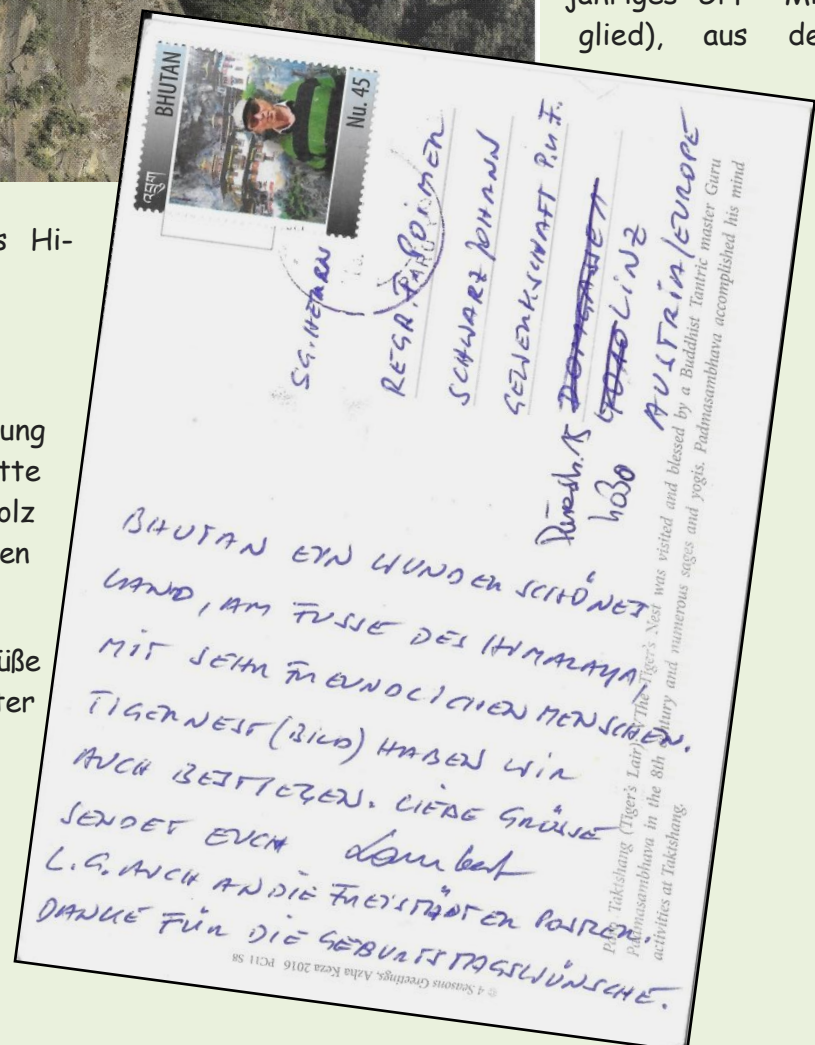 jähriges
glied), aus de
s Hi-
ung
tte
olz
en
üße
ter
BHUTAN
Nu. 45
PARO
SG. HERRN
REGR.
SCHWARZ JOHANN
GEWERKSCHAFT P.u.F.
DOMGASSE
4010 LINZ
4030
AUSTRIA/EUROPE
BHUTAN EIN WUNDERSCHÖNES
LAND, AM FUSSE DES HIMALAYA,
MIT SEHR FREUNDLICHEN MENSCHEN.
TIGERNEST (BILD) HABEN WIR
AUCH BESTIEGEN. LIEBE GRÜSSE
SENDET EUCH Lambert
L.G. AUCH AN DIE FREISTÄDTER POSTLER.
DANKE FÜR DIE GEBURTSTAGSWÜNSCHE.
Paro Taktshang (Tiger's Lair): The Tiger's Nest was visited and blessed by a Buddhist Tantric master Guru
Padmasambhava in the 8th century and numerous sages and yogis. Padmasambhava accomplished his mind
activities at Taktshang.
© 4 Seasons Greetings, Azha Keza 2016 PC11 S8